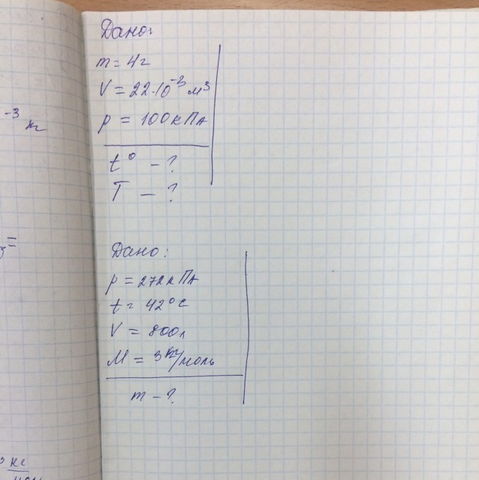 Дано:
m = 4г
V = 22·10⁻³ м³
-3 кг
p = 100кПа
t° - ?
T - ?
Дано:
p = 272кПа
t = 42°C
V = 800л
M = 3 кг/моль
m - ?
кг